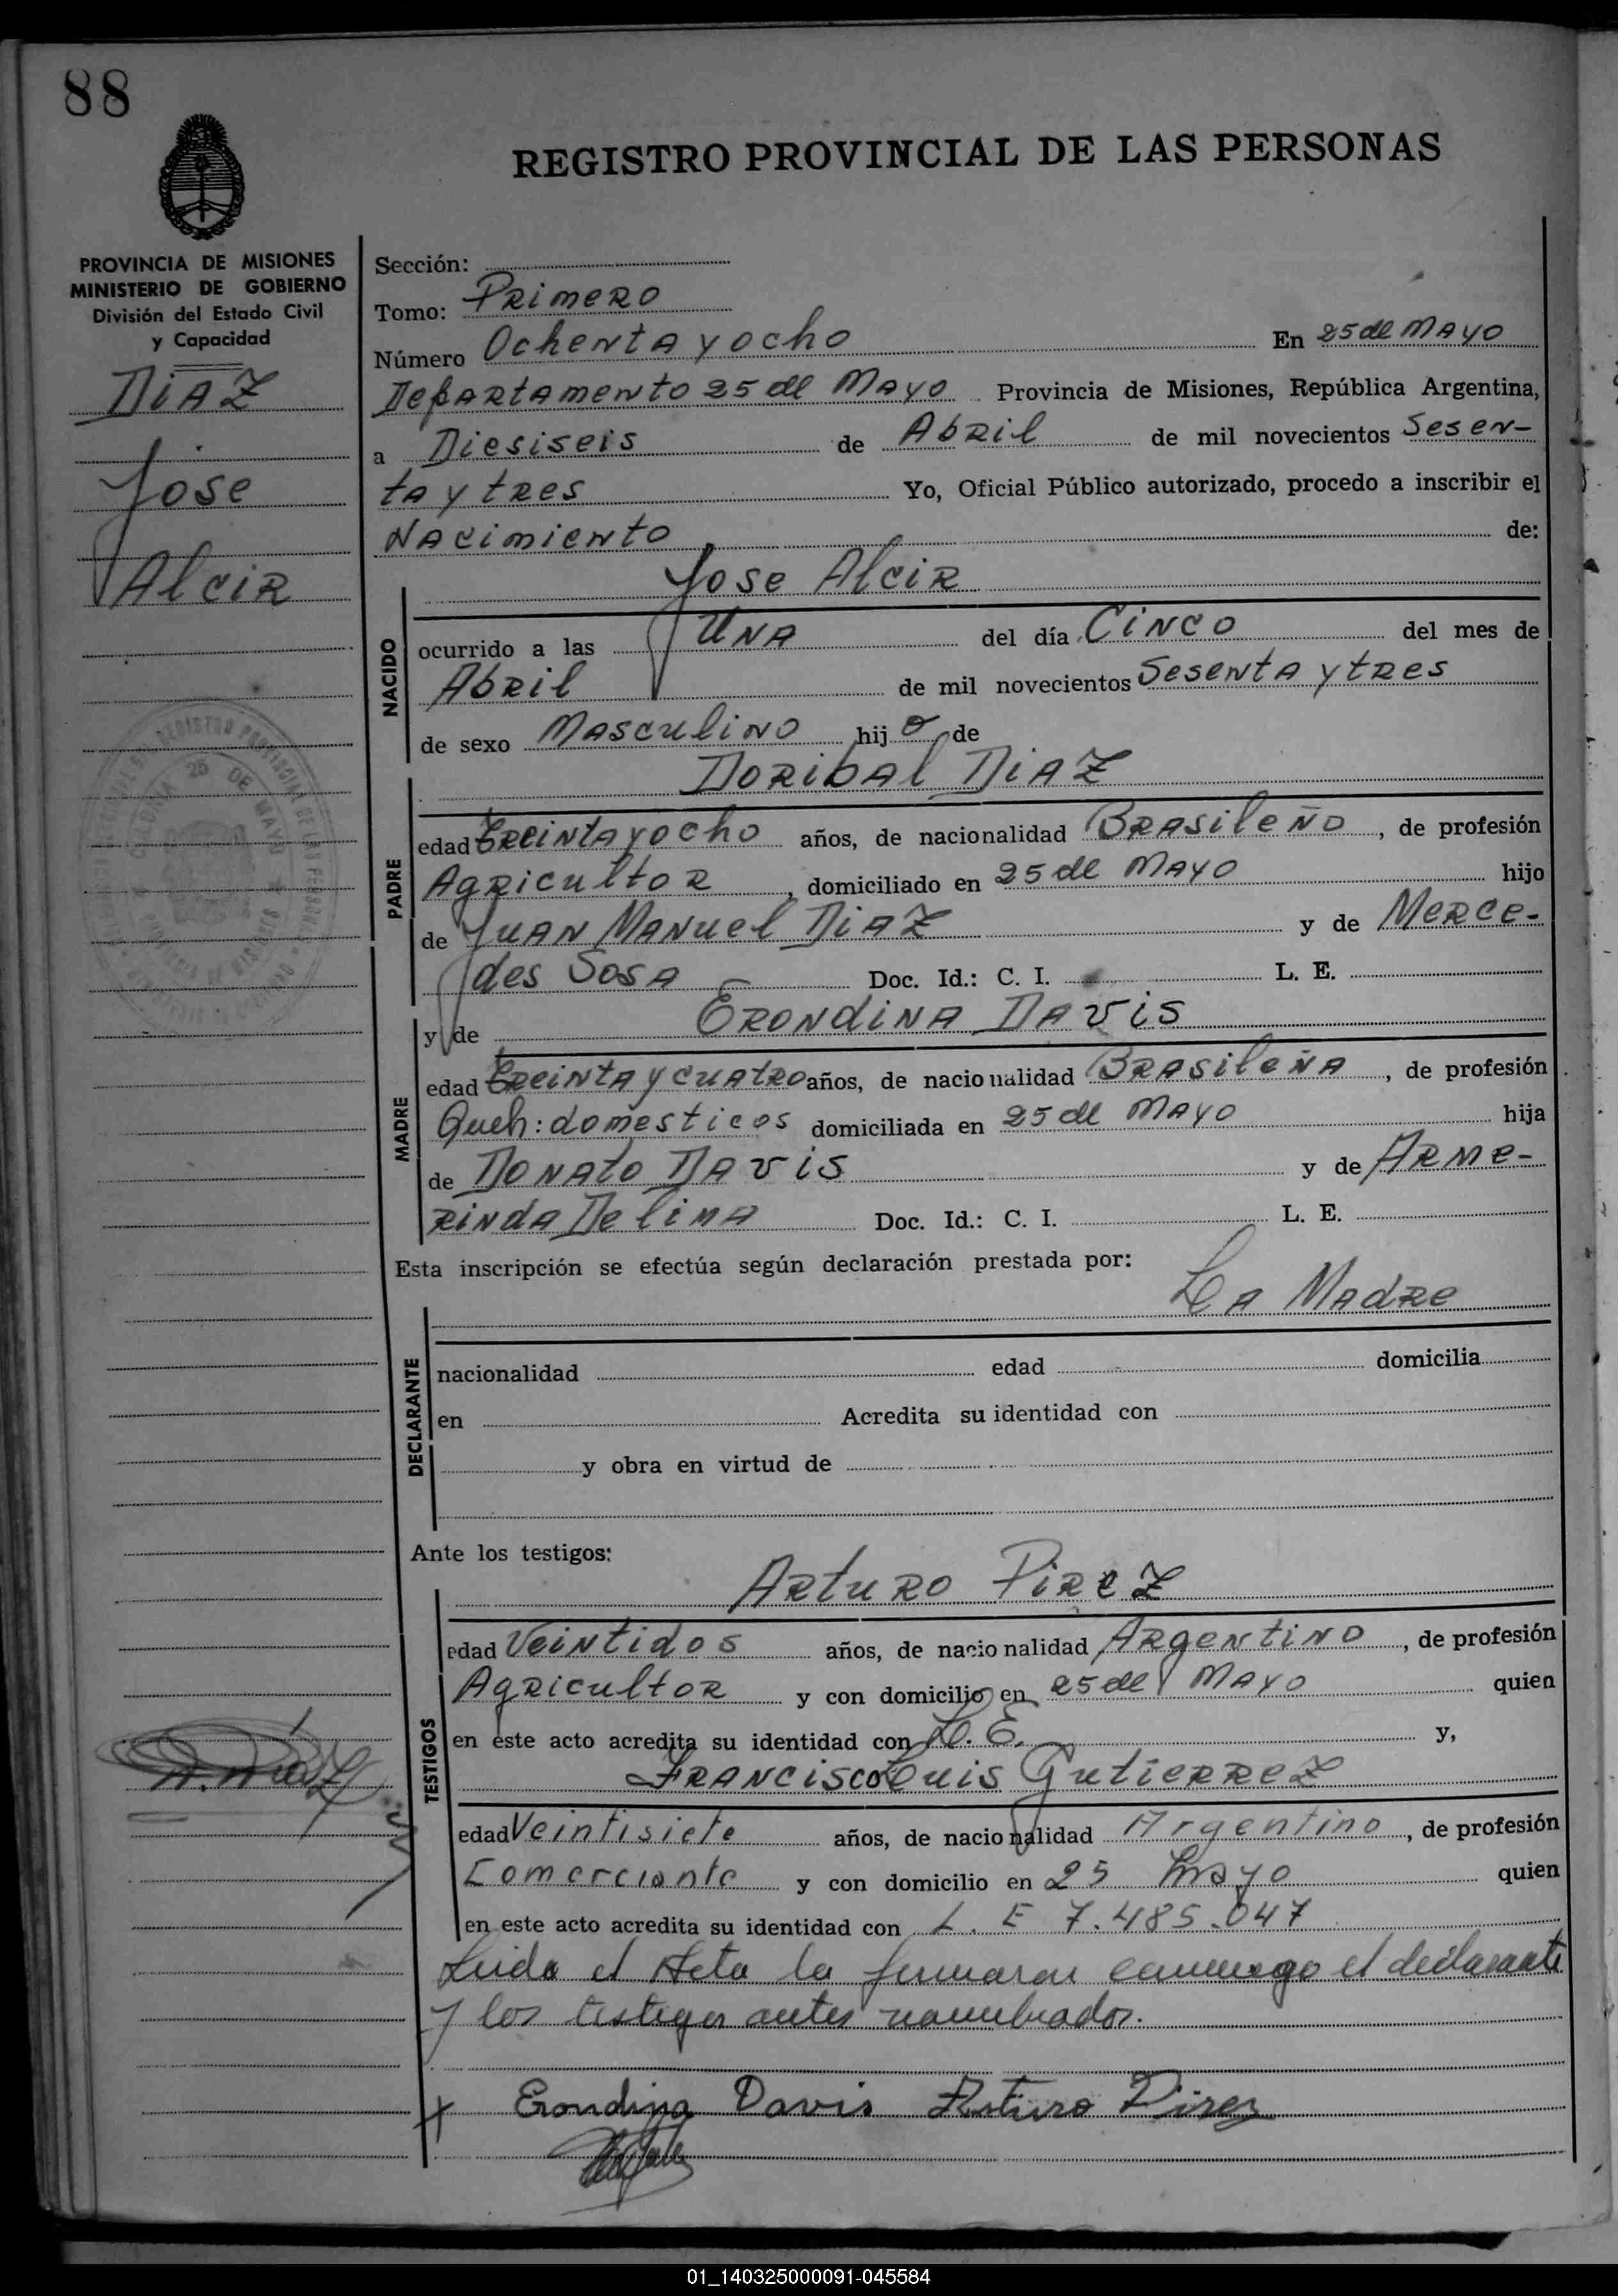 88
REGISTRO PROVINCIAL DE LAS PERSONAS
PROVINCIA DE MISIONES
MINISTERIO DE GOBIERNO
División del Estado Civil
y Capacidad
DIAZ
Jose
Alcir
Sección:
Tomo: Primero
Número Ochenta y ocho En 25 de Mayo
Departamento 25 de Mayo Provincia de Misiones, República Argentina,
a Diesiseis de Abril de mil novecientos Sesen-
ta y tres Yo, Oficial Público autorizado, procedo a inscribir el
Nacimiento de:
Jose Alcir
NACIDO
ocurrido a las Una del día Cinco del mes de
Abril de mil novecientos Sesenta y tres
de sexo Masculino hijo de
Doribal Diaz
PADRE
edad Treinta y ocho años, de nacionalidad Brasileño, de profesión
Agricultor, domiciliado en 25 de Mayo hijo
de Juan Manuel Diaz y de Merce-
des Sosa Doc. Id.: C. I. L. E.
y de Erondina Davis
MADRE
edad Treinta y cuatro años, de nacionalidad Brasileña, de profesión
Queh: domesticos domiciliada en 25 de Mayo hija
de Donato Davis y de Arme-
rinda De lima Doc. Id.: C. I. L. E.
Esta inscripción se efectúa según declaración prestada por:
La Madre
DECLARANTE
nacionalidad edad domicilia
en Acredita su identidad con
y obra en virtud de
Ante los testigos:
Arturo Pirez
TESTIGOS
edad Veintidos años, de nacionalidad Argentino, de profesión
Agricultor y con domicilio en 25 de Mayo quien
en este acto acredita su identidad con L. E. y,
Francisco Luis Gutierrez
edad Veintisiete años, de nacionalidad Argentino, de profesión
Comerciante y con domicilio en 25 Mayo quien
en este acto acredita su identidad con L. E 7.485.047
Leida el Acta la firmaron conmigo el declarante
y los testigos antes nombrados.
Erondina Davis Arturo Pirez
01_140325000091-045584